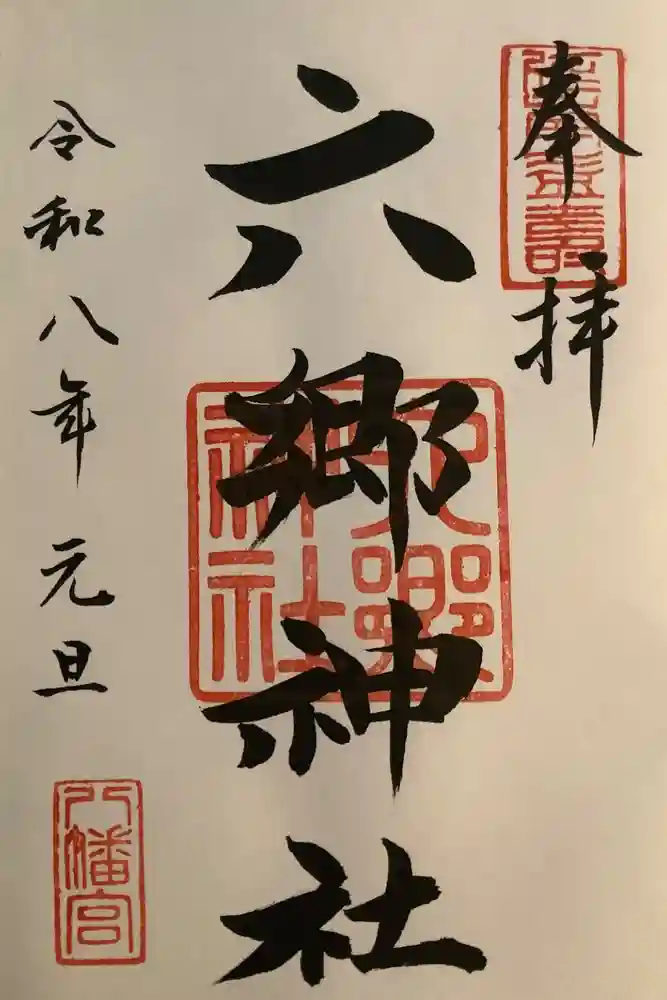 奉拝
六郷神社
六郷神社
令和八年元旦
八幡宮